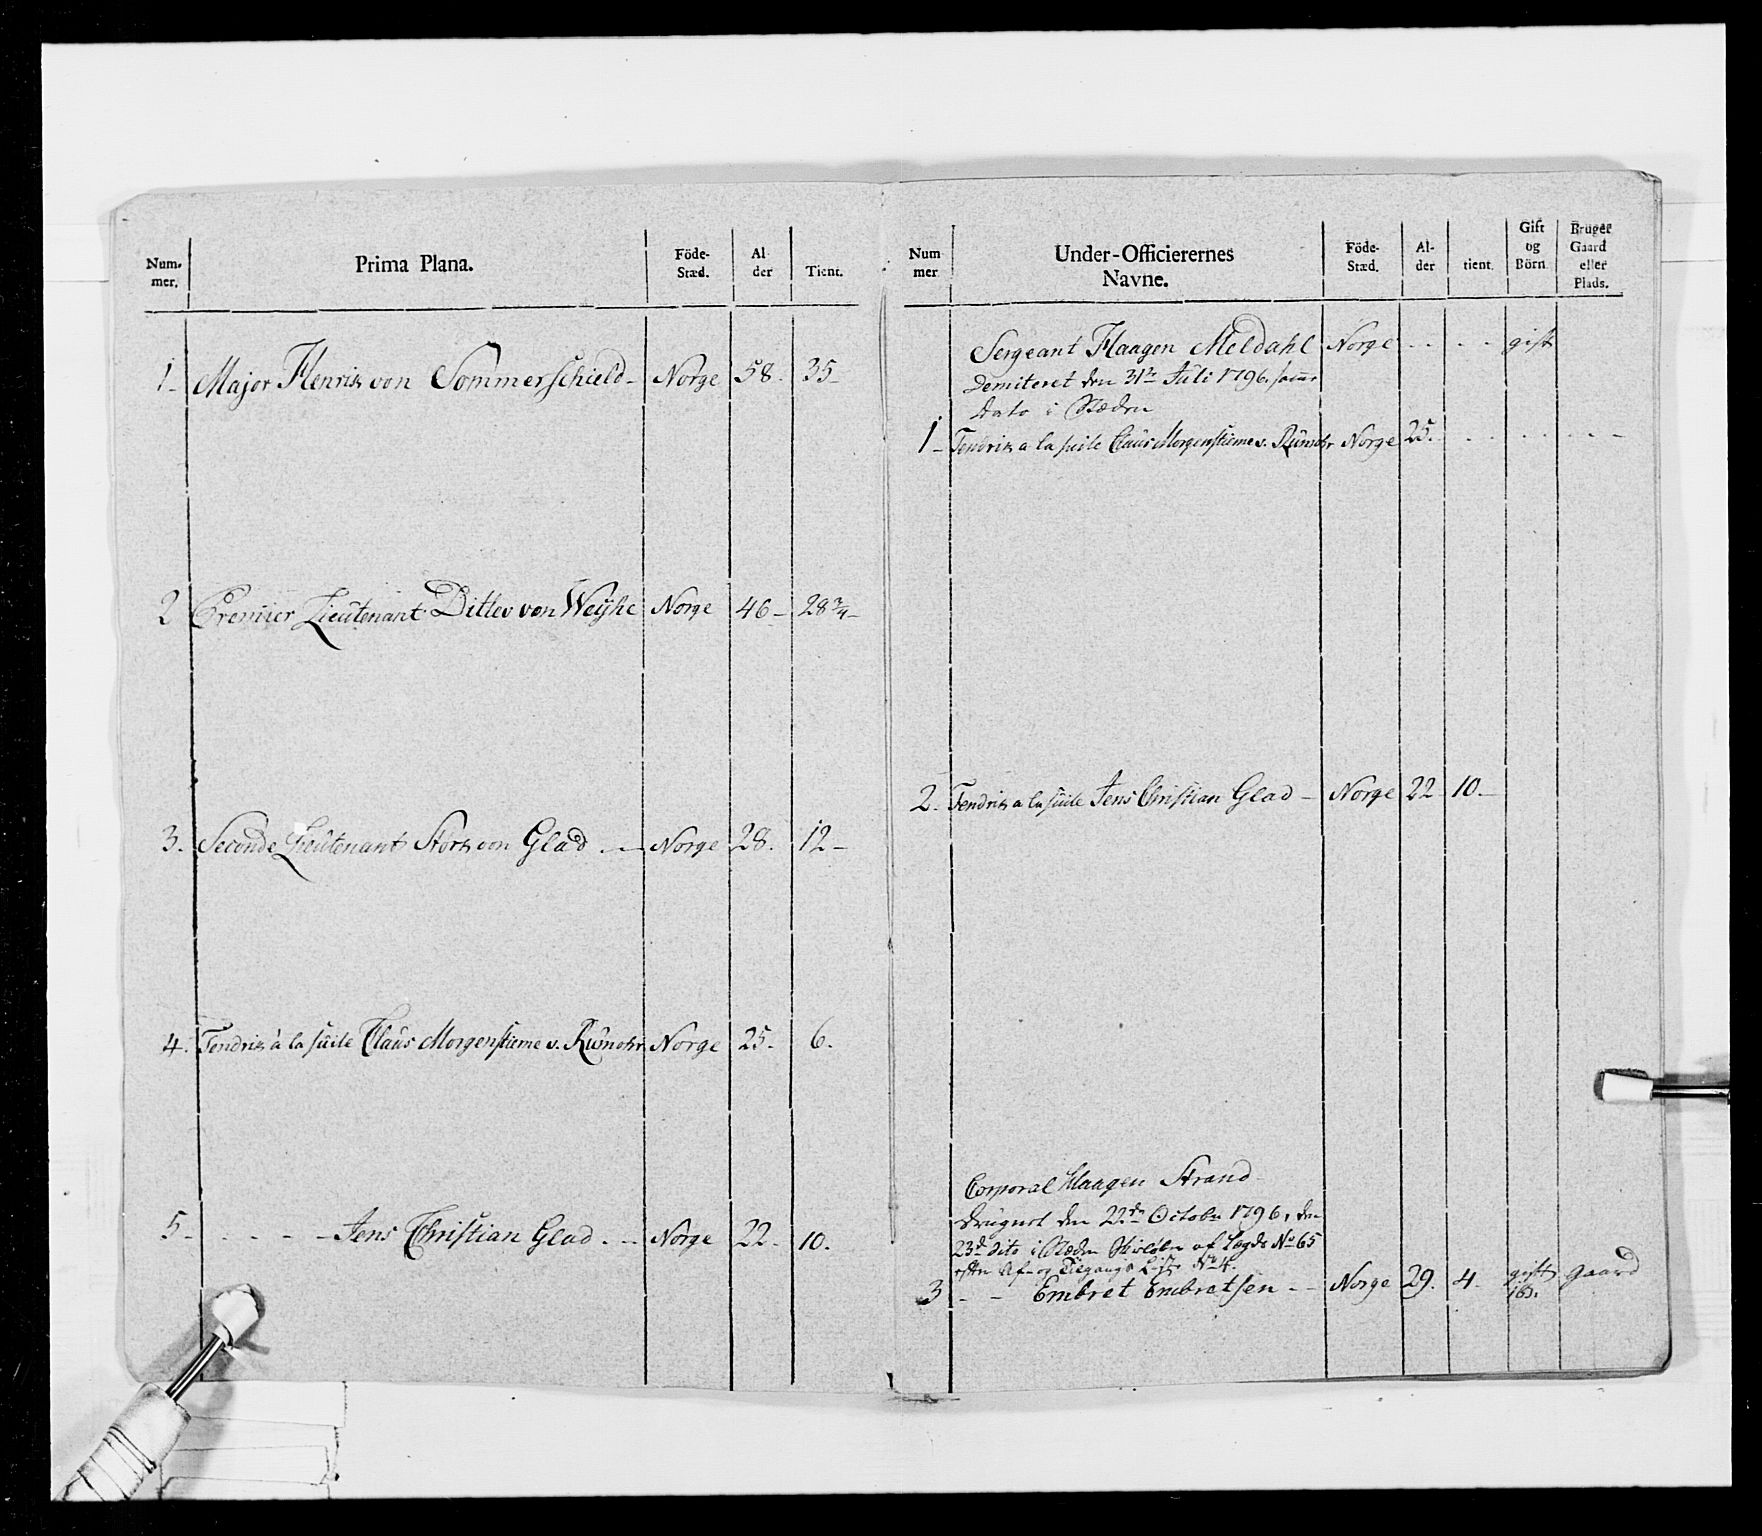 Num-
mer.
Prima Plana.
Föde-
Stæd.
Al
der
Tient.
1- Major Henrik von Sommerschield- Norge 58. 35-
2 Premier Lieutenant Ditlev von Weyhe Norge 46- 28 3/4-
3. Seconde Lieutenant Stork von Glad Norge 28. 12-
4. Fendrik à la suite Claus Morgenstierne v. Rumohr Norge 25. 6.
5- - - - - Jens Christian Glad Norge 22- 10.
Num
mer
Under-Officierernes
Navne.
Föde-
Stæd.
Al-
der
tient.
Gift
og
Börn
Bruger
Gaard
eller
Plads.
Sergeant Haagen Meldahl Norge - - - - gift
Demiteret den 31te Juli 1796. samme
Dato i Stæden
1- Fendrik a la suite Claus Morgenstierne v. Rumohr Norge 25.
2. Fendrik a la suite Jens Christian Glad - Norge 22 10.-
Corporal Haagen Strand
den 22de October 1796, den
23de dito i Stæden af Lægds No 65
efter Af- og Tilgangs Liste No 4.
3 - - Embret Embretsen - - Norge 29. 4. gift Gaard
1 B.